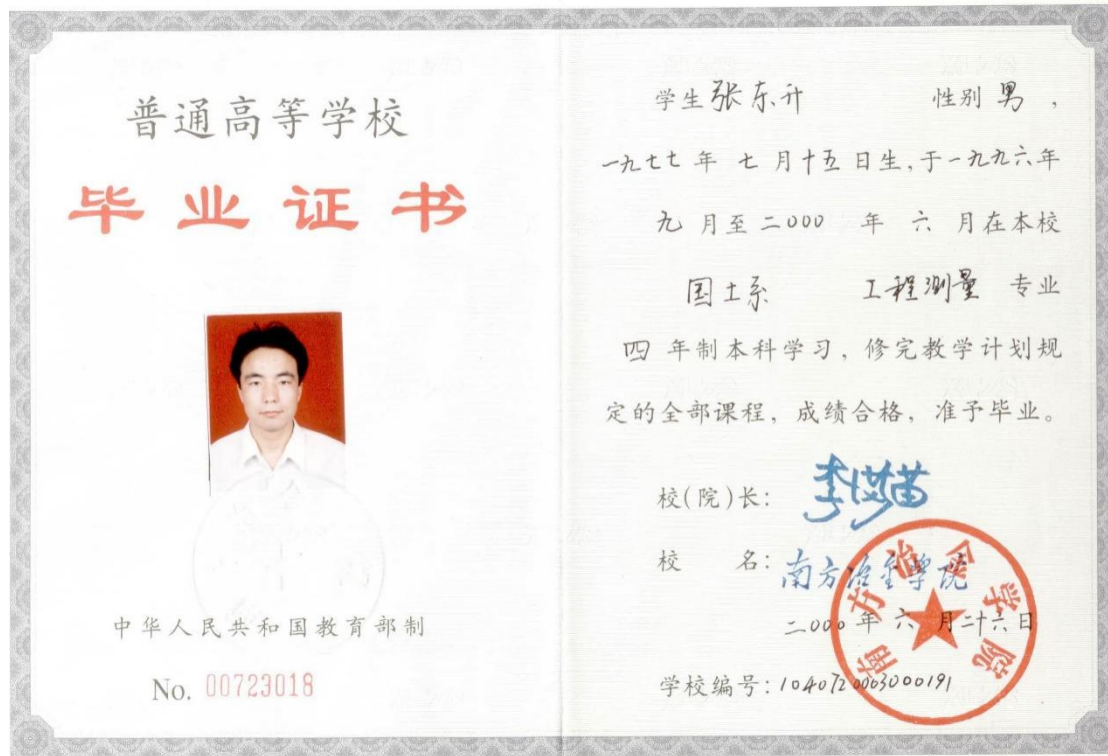 普通高等学校
毕业证书
中华人民共和国教育部制
No. 00723018
学生 张东升 性别 男 ,
一九七七 年 七 月 十五 日生,于一九九六年
九 月至 二000 年 六 月在本校
国土系 工程测量 专业
四 年制本科学习, 修完教学计划规
定的全部课程, 成绩合格, 准予毕业。
校(院)长:
校 名: 南方冶金学院
二000 年 六 月二十六日
学校编号: 1040720003000191
南方冶金学院